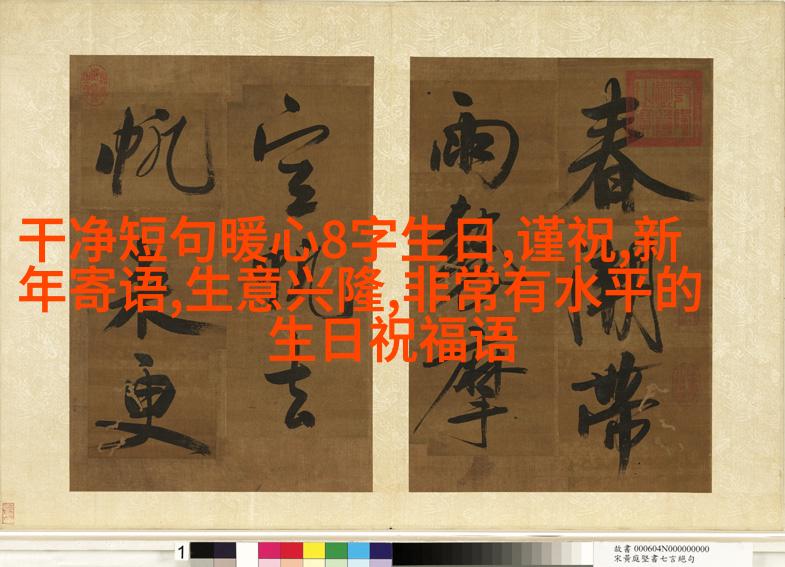 干净短句暖心8字生日,谨祝,新
年寄语,生意兴隆,非常有水平的
生日祝福语
春 帶
雨 摩
去
帆 更
1
故書 000604N000000000
宋黃庭堅書七言絕句